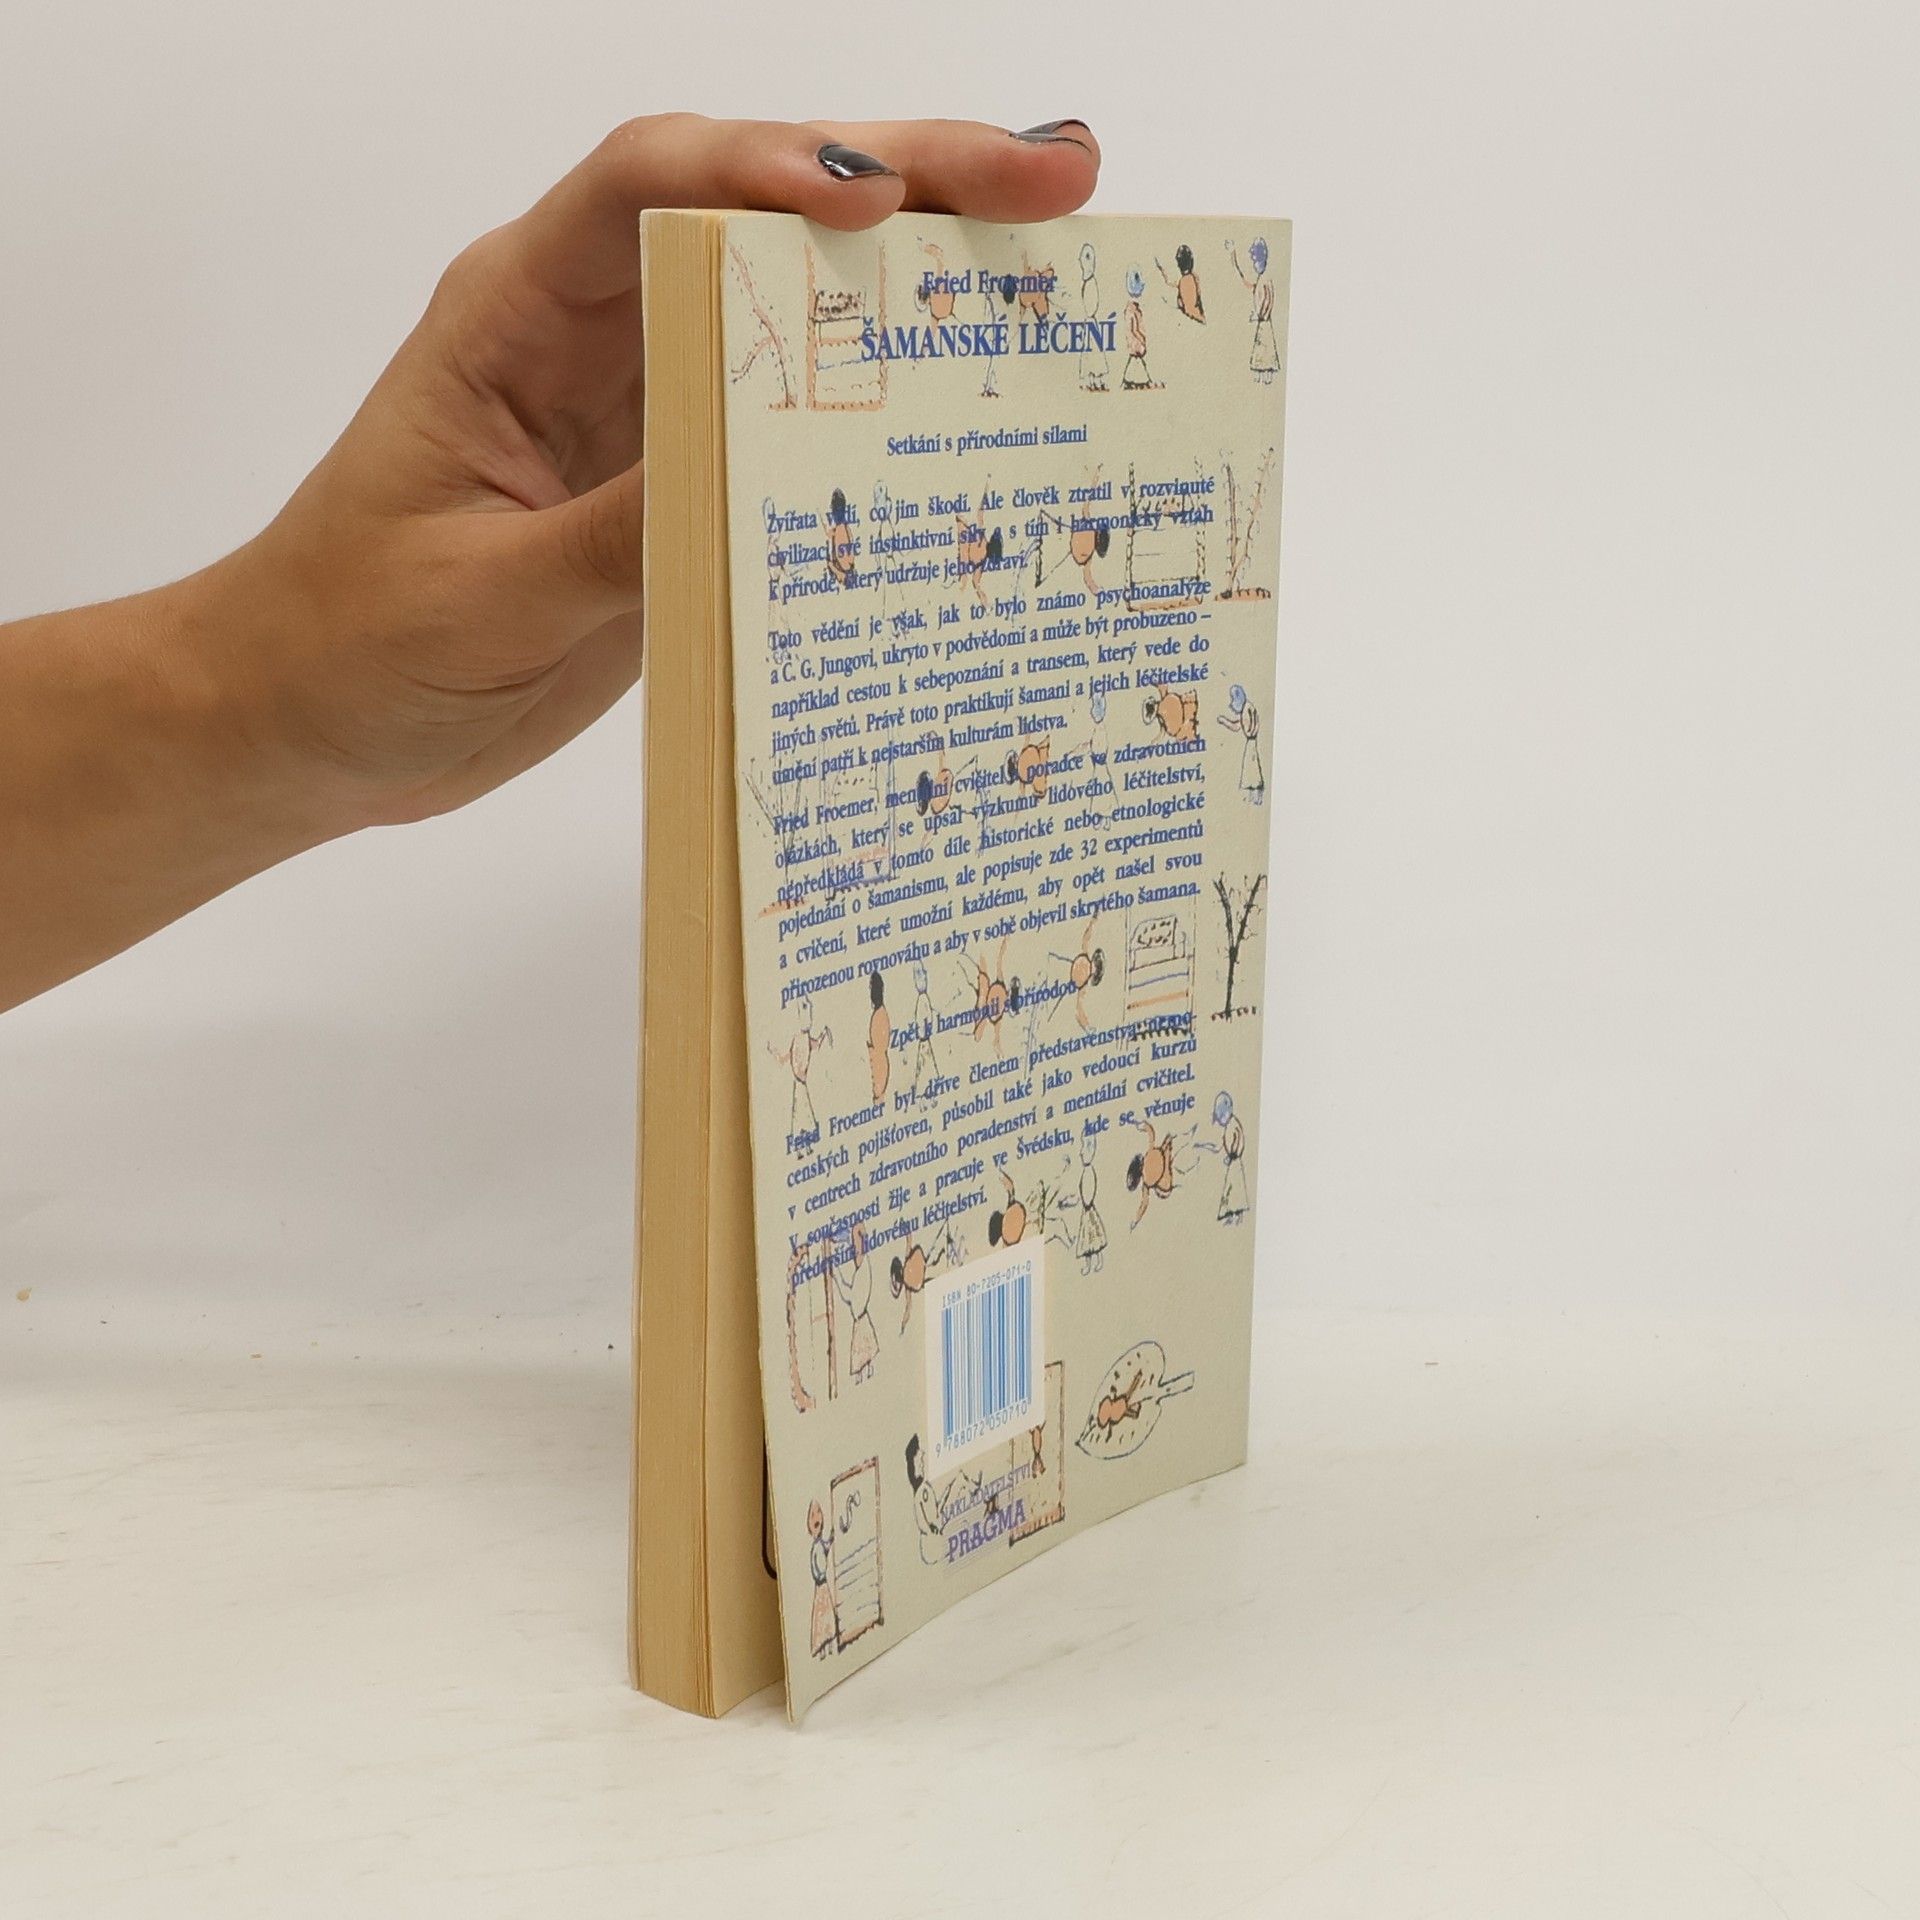 Fried Froemer
ŠAMANSKÉ LÉČENÍ
Setkání s přírodními silami
Zvířata vědí, co jim škodí. Ale člověk ztratil v rozvinuté
civilizaci své instinktivní síly a s tím i harmonický vztah
k přírodě, který udržuje jeho zdraví.
Toto vědění je však, jak to bylo známo psychoanalýze
a C. G. Jungovi, ukryto v podvědomí a může být probuzeno –
například cestou k sebepoznání a transem, který vede do
jiných světů. Právě toto praktikují šamani a jejich léčitelské
umění patří k nejstarším kulturám lidstva.
Fried Froemer, mentální cvičitel a poradce ve zdravotních
otázkách, který se upsal výzkumu lidového léčitelství,
nepředkládá v tomto díle historické nebo etnologické
pojednání o šamanismu, ale popisuje zde 32 experimentů
a cvičení, které umožní každému, aby opět našel svou
přirozenou rovnováhu a aby v sobě objevil skrytého šamana.
Zpět k harmonii s přírodou
Fried Froemer byl dříve členem představenstva nemo-
cenských pojišťoven, působil také jako vedoucí kurzů
v centrech zdravotního poradenství a mentální cvičitel.
V současnosti žije a pracuje ve Švédsku, kde se věnuje
především lidovému léčitelství.
ISBN 80-7205-071-0
9 788072 050710
NAKLADATELSTVÍ
PRAGMA